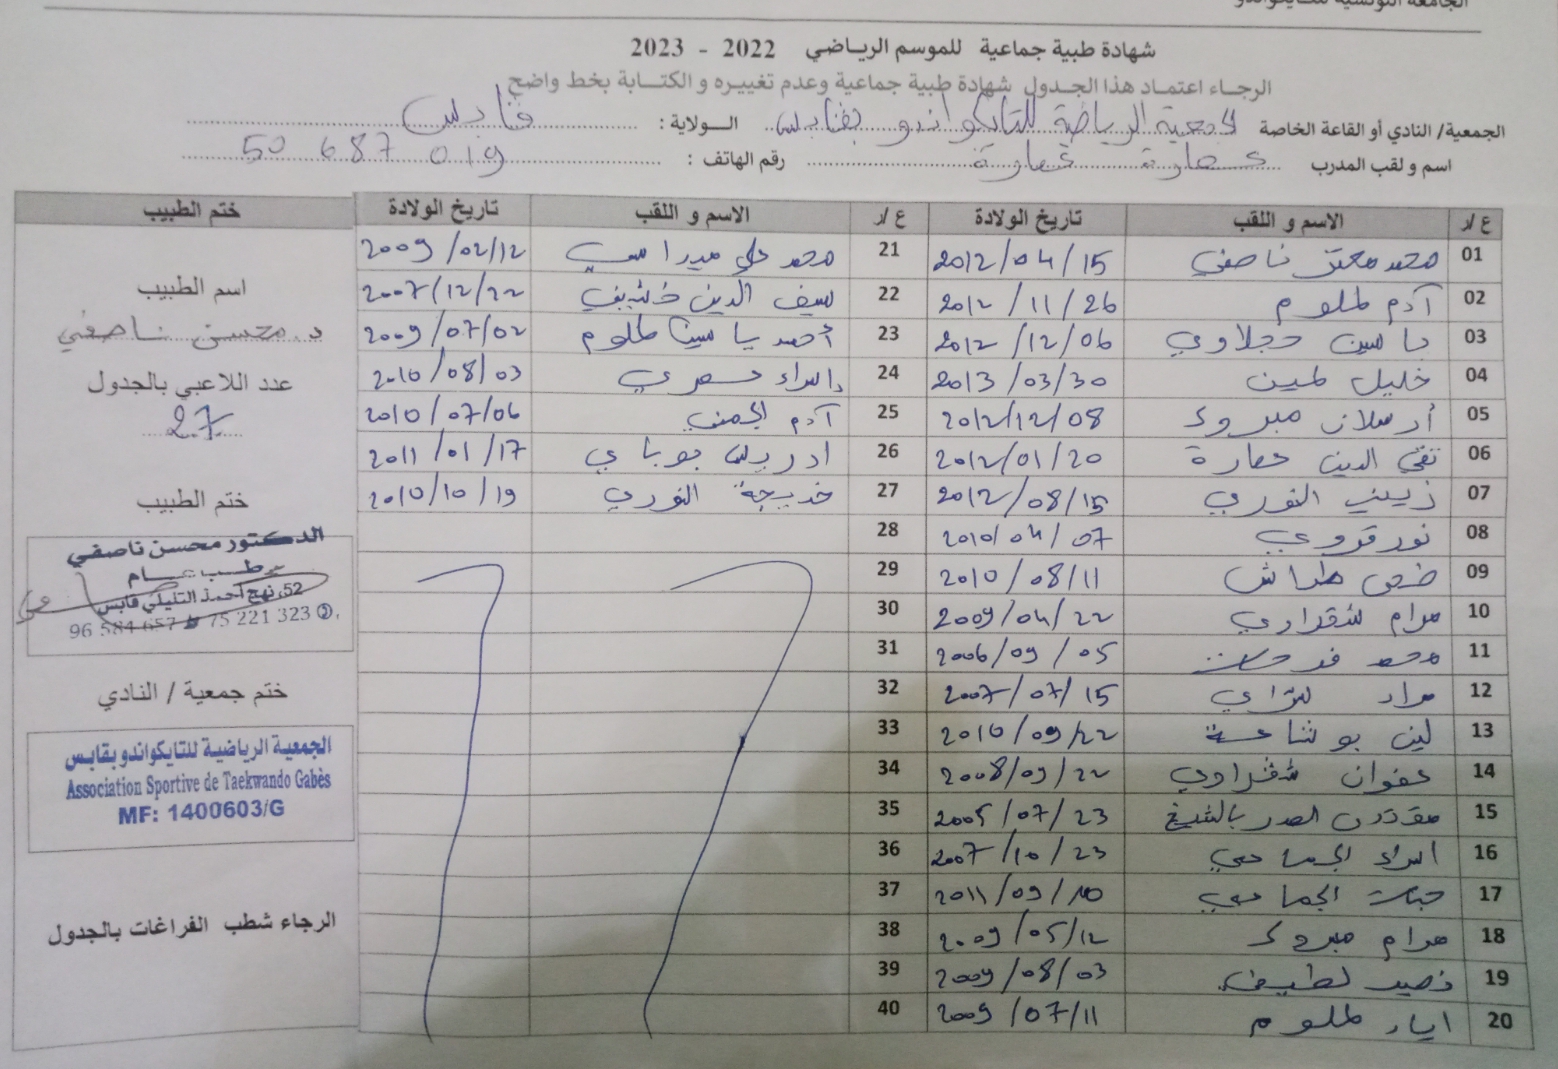 الجامعة التونسية للتايكواندو
شهادة طبية جماعية للموسم الرياضي 2022 - 2023
الرجاء اعتماد هذا الجدول شهادة طبية جماعية وعدم تغييره و الكتابة بخط واضح
الجمعية/ النادي أو القاعة الخاصة الجمعية الرياضية للتايكواندو بقابس الولاية : قابس
اسم و لقب المدرب عمارة عمارة رقم الهاتف : 50 687 019
ع /ر الاسم و اللقب تاريخ الولادة ع /ر الاسم و اللقب تاريخ الولادة ختم الطبيب
01 محمد معتز ناصفي 2012/04/15 21 محمد علي ميراسي 2009/02/12
02 آدم ملوم 2012/11/26 22 سيف الدين 2007/12/22
03 ياسين حجلاوي 2012/12/06 23 أحمد ياسين ملوم 2009/07/02
04 خليل لمين 2013/03/30 24 اسراء 2010/08/03
05 أرسلان مبروك 2012/12/08 25 آدم الجمني 2010/07/06
06 تقي الدين عمارة 2012/01/20 26 ادريس بوباي 2011/01/17
07 زينب النوري 2012/08/15 27 خديجة النوري 2010/10/19
08 نور قروي 2010/04/07 28
09 ضحى طراش 2010/08/11 29
10 مرام شقراوي 2009/04/22 30
11 محمد فرحات 2006/09/05 31
12 مراد 2007/07/15 32
13 لين بوشاعة 2010/09/22 33
14 صفوان شقراوي 2008/09/22 34
15 بالشيخ 2005/07/23 35
16 اسراء الجماعي 2007/10/23 36
17 الجماعي 2011/09/10 37
18 مرام مبروك 2009/05/12 38
19 نصير لطيف 2009/08/03 39
20 اياد ملوم 2009/07/11 40
اسم الطبيب
د. محسن ناصفي
عدد اللاعبي بالجدول
27
ختم الطبيب
الدكتور محسن ناصفي
طب عام
52، نهج أحمد التليلي قابس
75 221 323 96 584 657
ختم جمعية / النادي
الجمعية الرياضية للتايكواندو بقابس
Association Sportive de Taekwando Gabès
MF: 1400603/G
الرجاء شطب الفراغات بالجدول